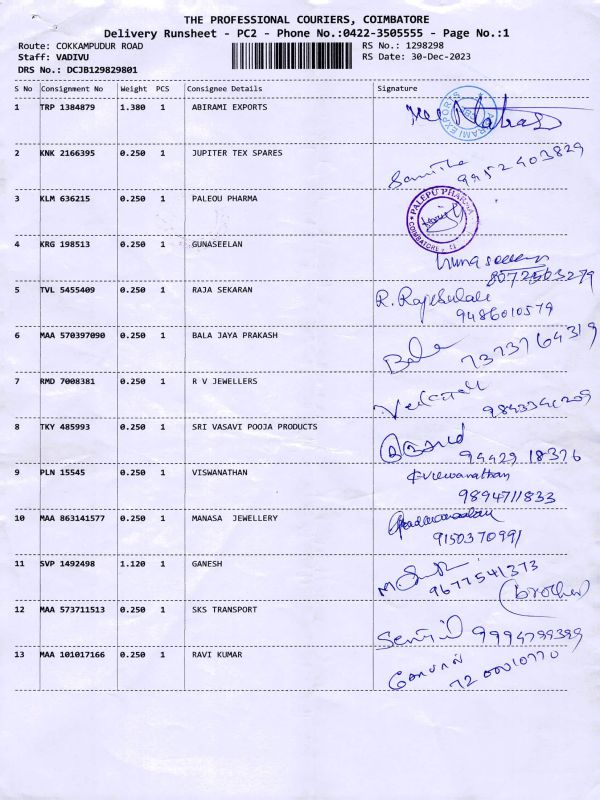 THE PROFESSIONAL COURIERS, COIMBATORE
Delivery Runsheet - PC2 - Phone No.:0422-3505555 - Page No.:1
Route: COKKAMPUDUR ROAD RS No.: 1298298
Staff: VADIVU RS Date: 30-Dec-2023
DRS No.: DCJB129829801
S No Consignment No Weight PCS Consignee Details Signature
1 TRP 1384879 1.380 1 ABIRAMI EXPORTS
2 KNK 2166395 0.250 1 JUPITER TEX SPARES
9952403829
3 KLM 636215 0.250 1 PALEOU PHARMA
PALEPU PHARMA
COIMBATORE
4 KRG 198513 0.250 1 GUNASEELAN
5 TVL 5455409 0.250 1 RAJA SEKARAN
9486010579
6 MAA 570397090 0.250 1 BALA JAYA PRAKASH
Bala 7373764319
7 RMD 7008381 0.250 1 R V JEWELLERS
8 TKY 485993 0.250 1 SRI VASAVI POOJA PRODUCTS
94429 18376
9 PLN 15545 0.250 1 VISWANATHAN
Viswanathan
9894711833
10 MAA 863141577 0.250 1 MANASA JEWELLERY
9150370991
11 SVP 1492498 1.120 1 GANESH
9677541373
(brother)
12 MAA 573711513 0.250 1 SKS TRANSPORT
Senthil 9994799399
13 MAA 101017166 0.250 1 RAVI KUMAR